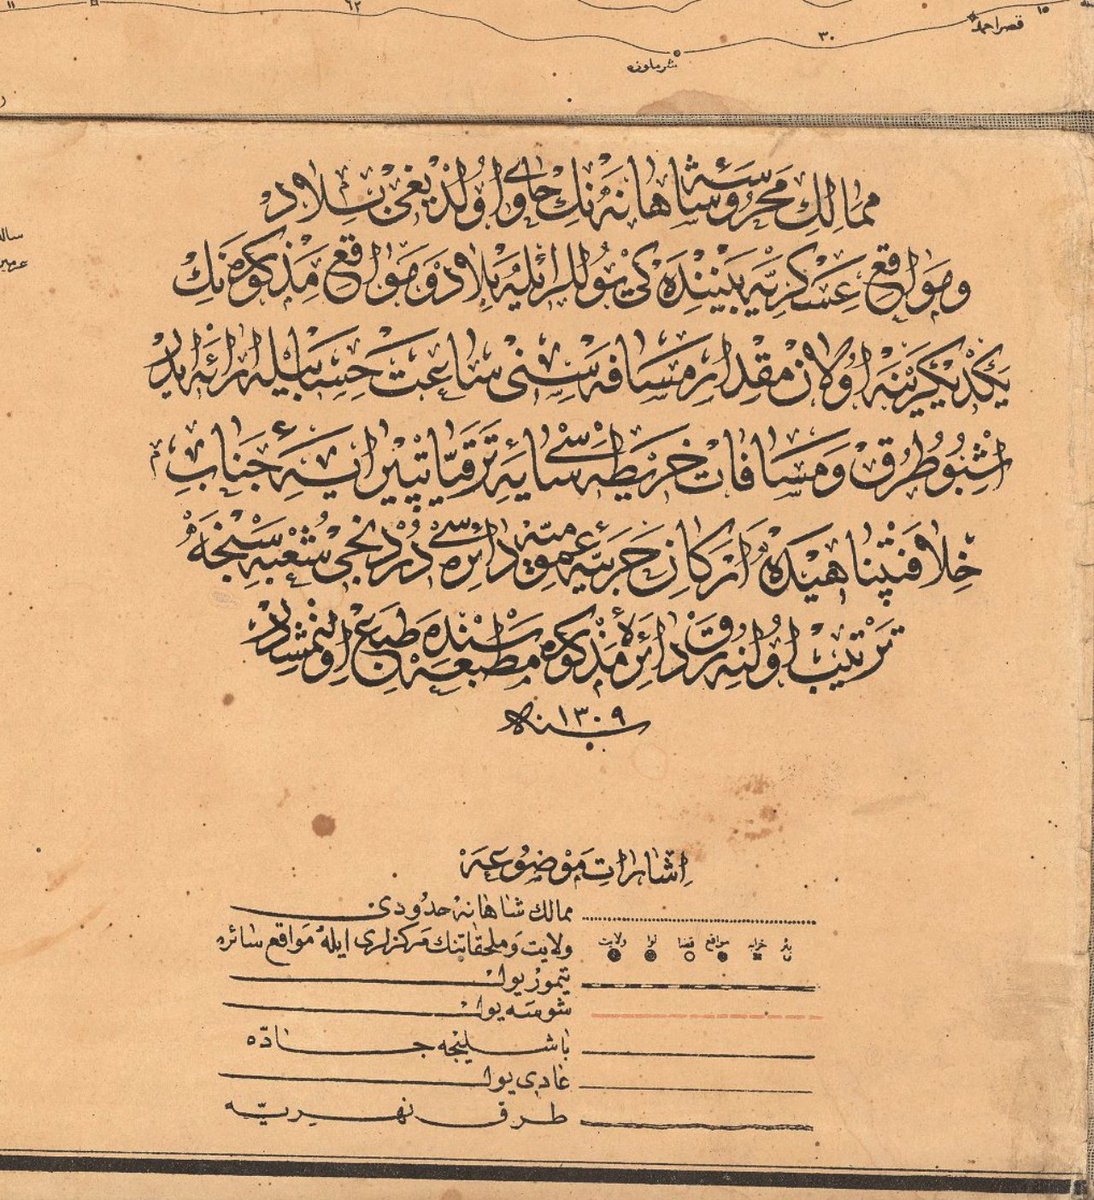 ١١
٦٢
٣٠
١٥
قصر احمد
شرملوزه
ممالك محروسۀ شاهانه‌نك حاوی اولدیغی بلاد
و مواقع عسكریه بیننده‌كی یوللر ایله بلاد و مواقع مذكوره‌نك
یكدیكرینه اولان مقدار مسافه‌سنی ساعت حسابیله ارائه ایدر
اشبو طرق و مسافات خریطه‌سی سایۀ ترقیاتپیرایۀ جناب
خلافتپناهیده اركان حربیۀ عمومیه دائره‌سی دردنجی شعبه‌سنجه
ترتیب اولنه‌رق دائرۀ مذكوره مطبعه‌سنده طبع اولنمشدر
سنه ١٣٠٩
اشارات موضوعه
ممالك شاهانه حدودی
ولایت و ملحقاتنك مركزلری ایله مواقع سائره
ولایت لوا قضا مواقع خرابه
تیمور یول
شوسه یول
باشلیجه جادّه
عادی یول
طرق نهریّه